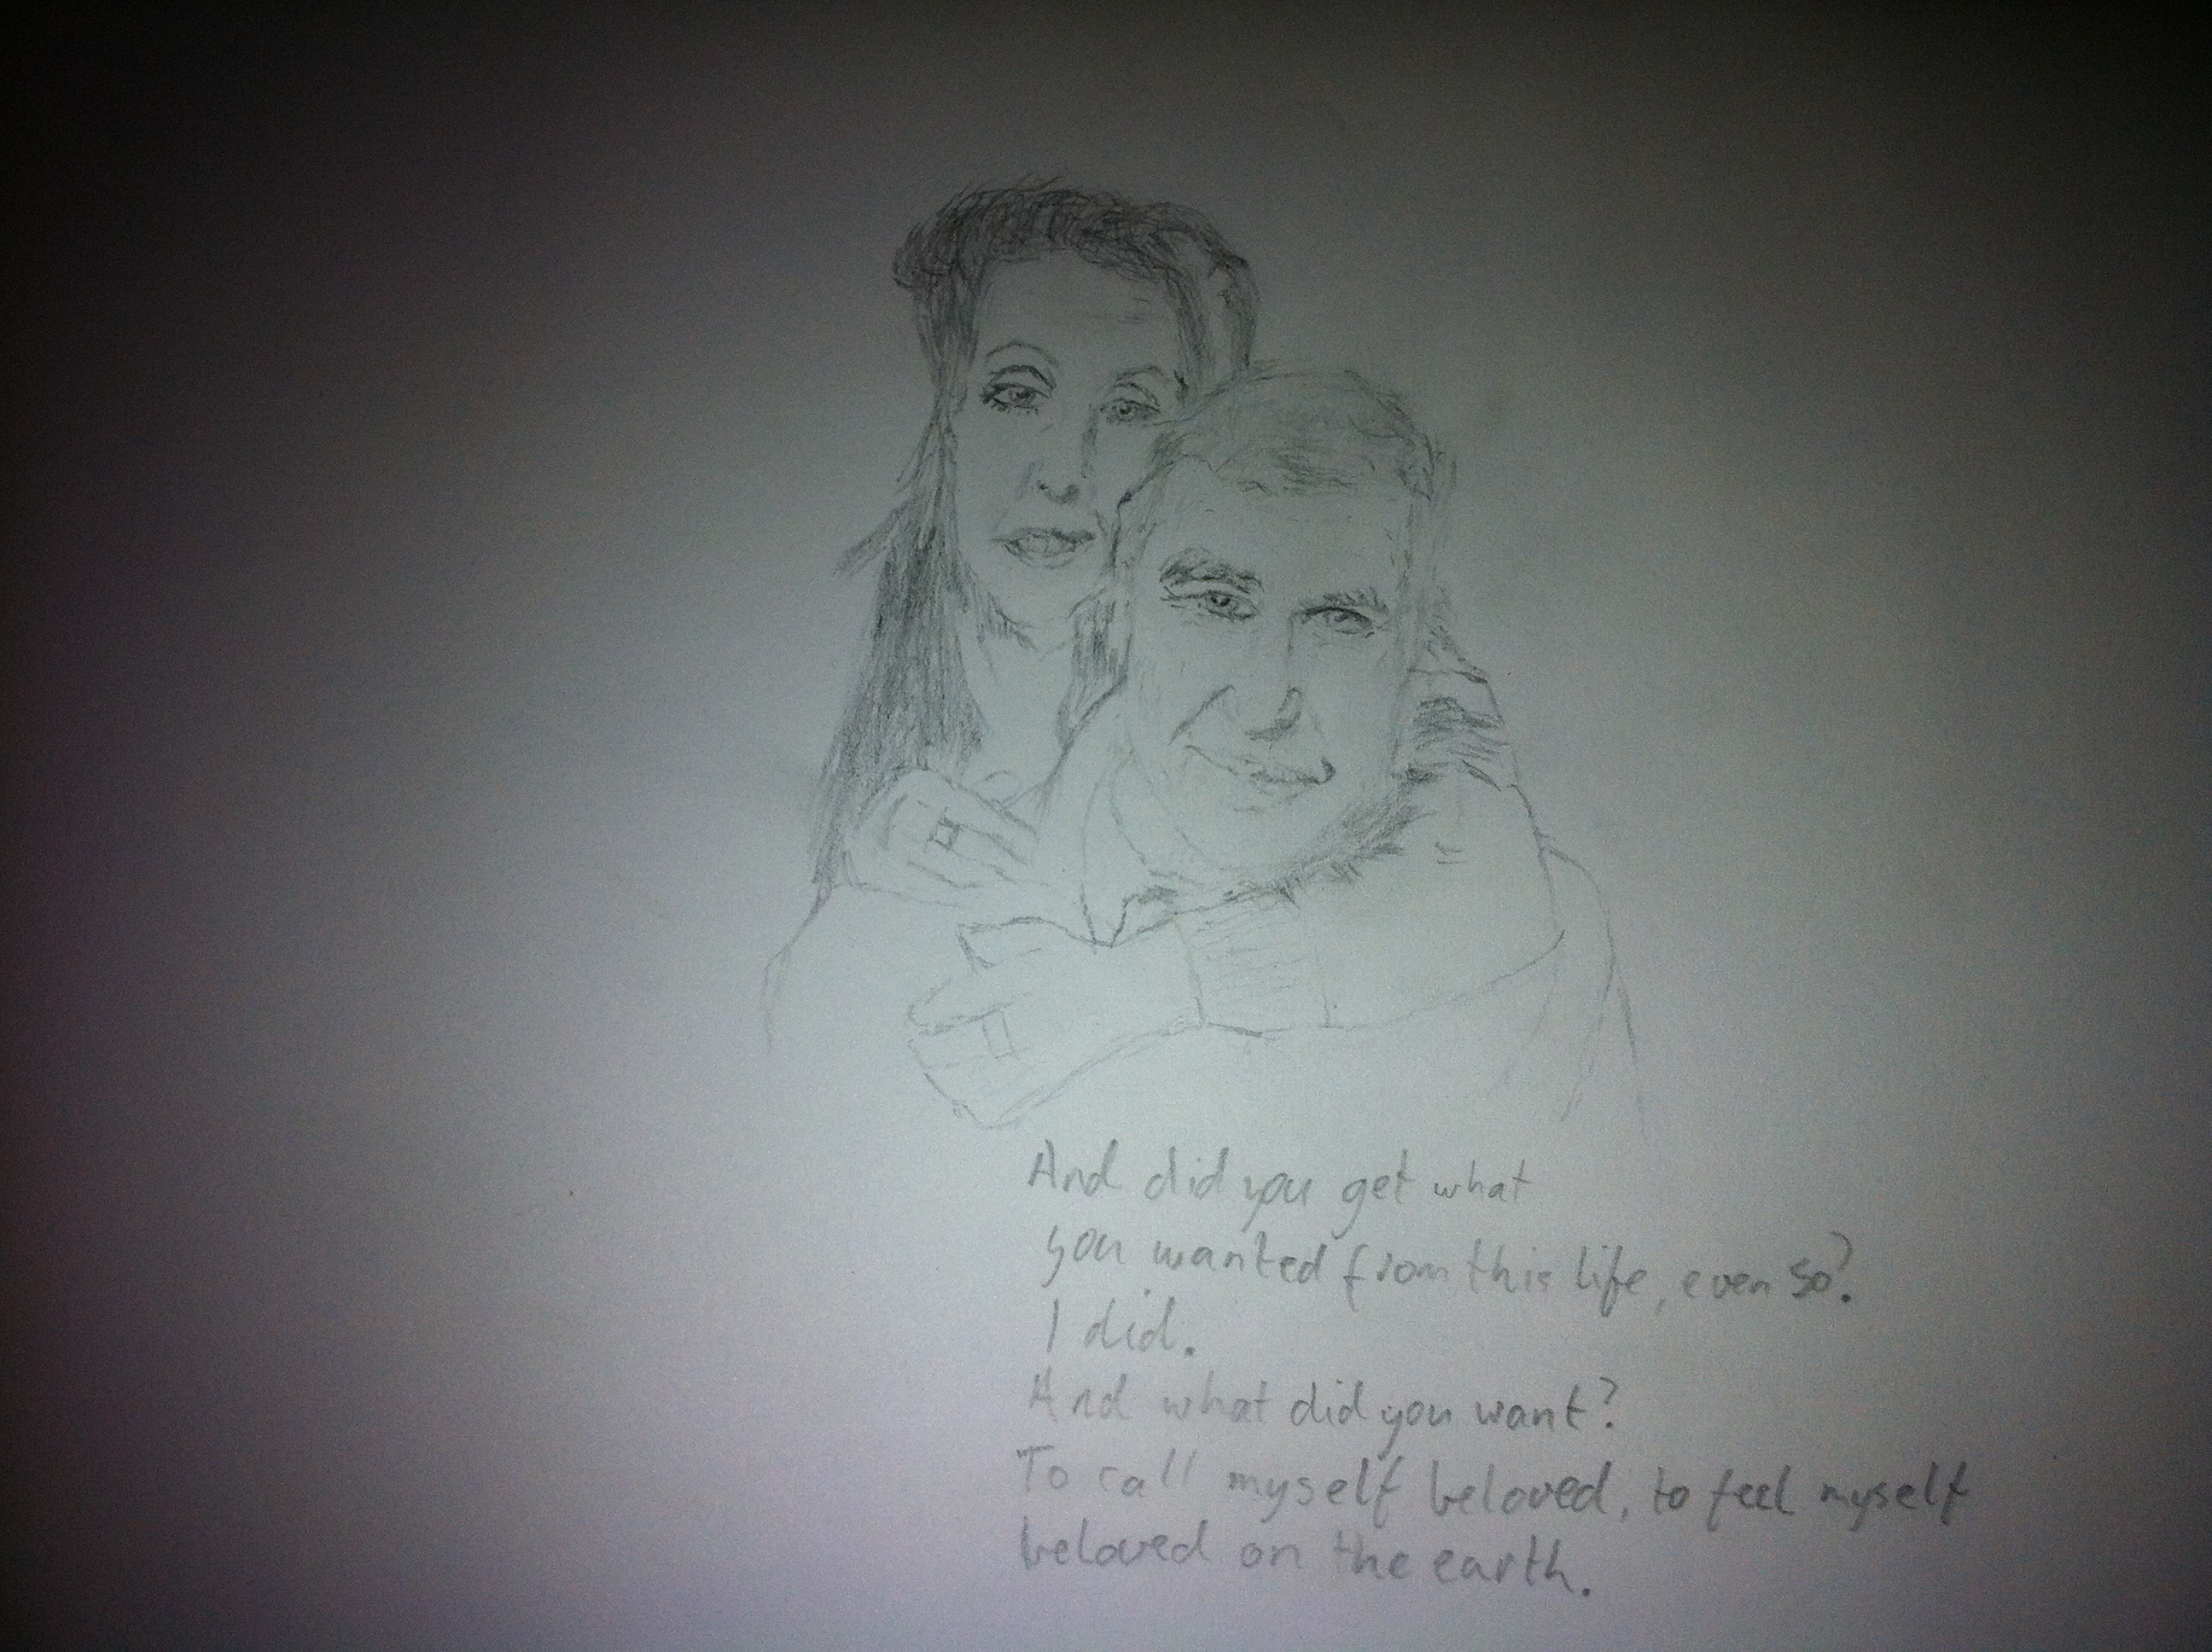 And did you get what
you wanted from this life, even so?
I did.
And what did you want?
To call myself beloved, to feel myself
beloved on the earth.